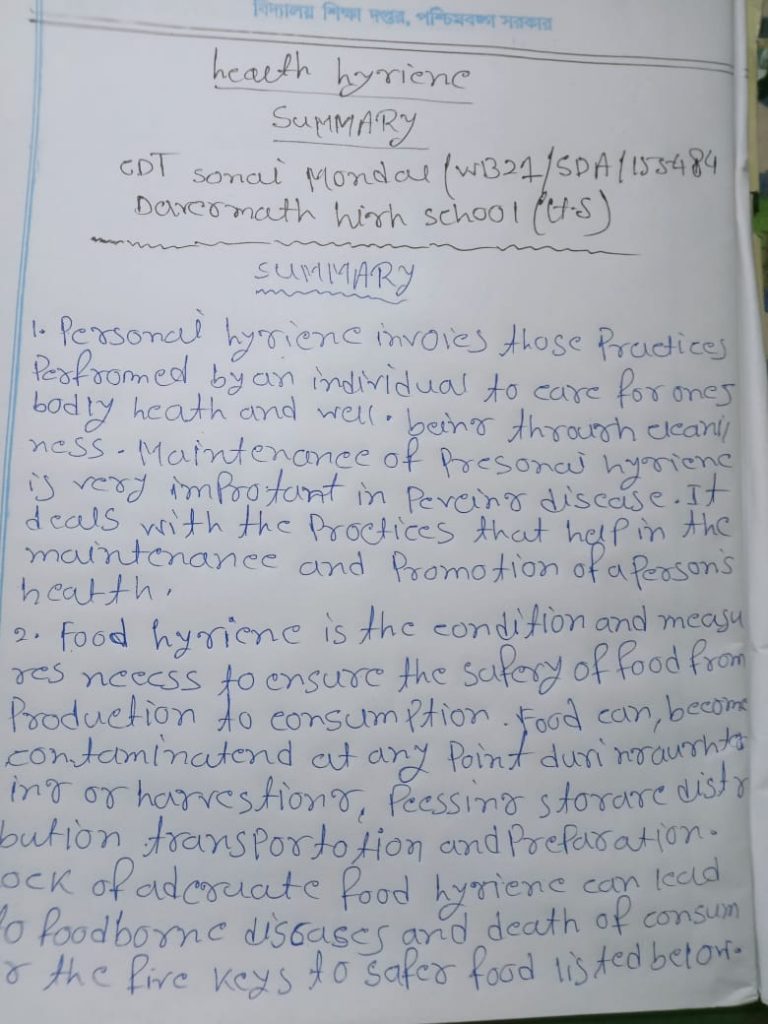 বিদ্যালয় শিক্ষা দপ্তর, পশ্চিমবঙ্গ সরকার
heaeth hyriene
SUMMARY
CDT sonai Mondal (WB21/SDA/155484
Darermath hirh school (H.S)
SUMMARY
1. Personal hyriene invoies those Practices
Perfromed by an individual to care for ones
bodly heath and well. beinr throurh cleanli
ness. Maintenance of Presonal hyriene
is very improtant in Perveinr disecse. It
deals with the Proctices that help in the
maintenance and Promotion of a Person's
health.
2. Food hyriene is the condition and measu
res necess to ensure the safery of food from
Production to consumption. Food can, become
contaminatend at any Point duri nraurhte
inr or harvestionr, Peessinr storare distr
bution transportotion and Preparation.
ock of aderuate food hyriene can lead
to foodborne diseases and death of consum
r the five keys to safer food listed below.